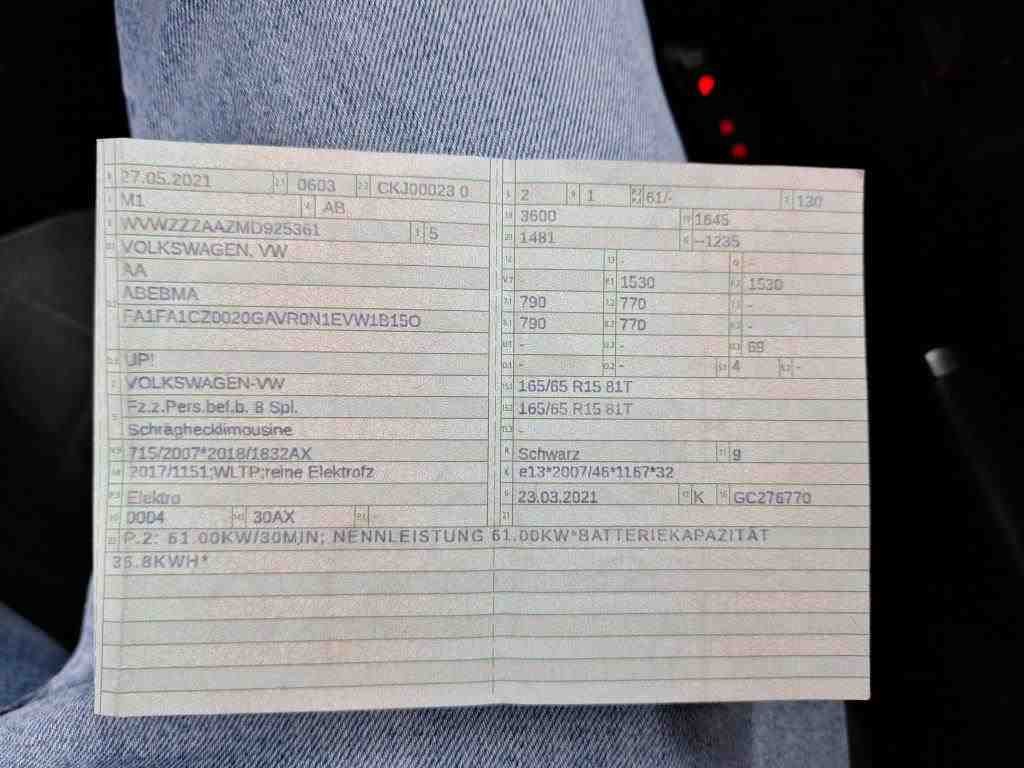 27.05.2021 0603 CKJ00023 0
M1 AB
WVWZZZAAZMD925361 5
VOLKSWAGEN, VW
AA
ABEBMA
FA1FA1CZ0020GAVR0N1EVW1B15O
UP!
VOLKSWAGEN-VW
Fz.z.Pers.bef.b. 8 Spl.
Schräghecklimousine
715/2007*2018/1832AX
2017/1151;WLTP;reine Elektrofz
Elektro
0004 30AX -
2 1 61/- 130
3600 1645
1481 --1235
- - -
- 1530 1530
790 770 -
790 770 -
- - 69
- - 4 -
165/65 R15 81T
165/65 R15 81T
-
Schwarz 9
e13*2007/46*1167*32
23.03.2021 K GC276770
P.2: 61.00KW/30MIN; NENNLEISTUNG 61.00KW*BATTERIEKAPAZITÄT
36.8KWH*